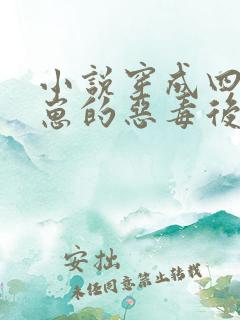 小说穿成四
崽的恶毒後
安拙
未经同意禁止转载